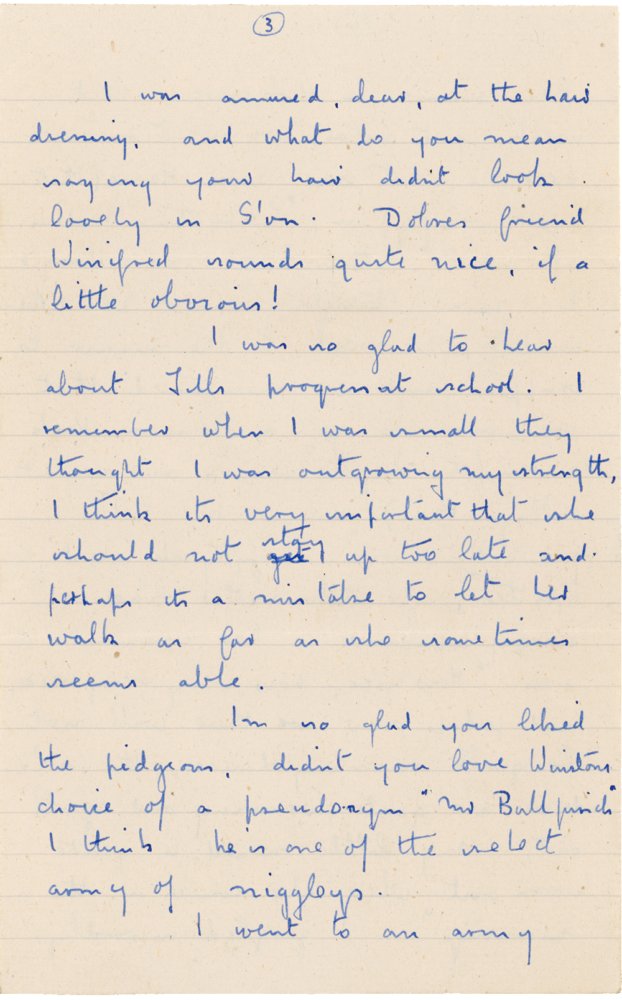 3
I was amused, dear, at the hair
dressing, and what do you mean
saying your hair didn't look
lovely in S'on. Dolores friend
Winifred sounds quite nice, if a
little obvious!
I was so glad to hear
about Jills progress at school. I
remember when I was small they
thought I was outgrowing my strength,
I think its very important that she
should not stay up too late and
perhaps its a mistake to let her
walk as far as she sometimes
seems able.
Im so glad you liked
the pidgeons, didnt you love Winstons
choice of a pseudonym "Mr Bullfinch"
I think he is one of the select
army of niggleys.
I went to an army